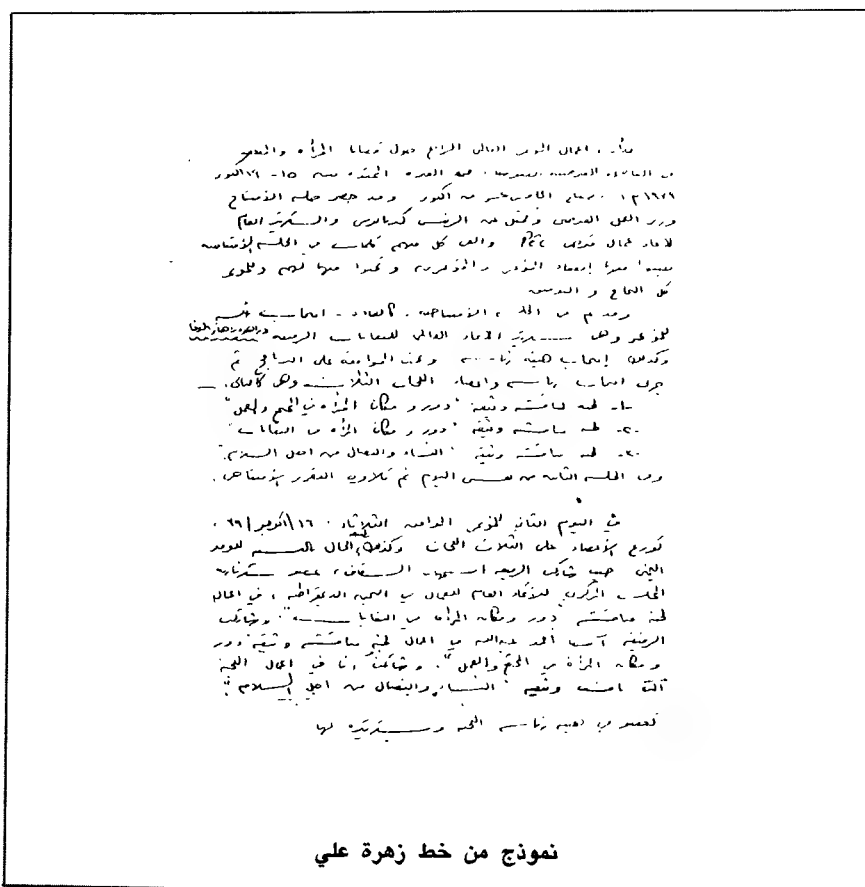 بدأت أعمال المؤتمر العالمي الرابع حول قضايا المرأة والعمل
في الفترة الممتدة من ١٥ - أكتوبر
من أكتوبر وقد حضر جلسة الافتتاح
وزير العمل القبرصي وممثل عن الرئيس كبريانوس والسكرتير العام
لاتحاد عمال قبرص والقى كل منهم كلمات في الجلسة الافتتاحية
إنعقاد المؤتمر وتمنوا منها لهم وللمؤتمر
كل النجاح و التوفيق
وقدم في الجلسة الافتتاحية - كالعادة - انتخاب
للمؤتمر وهي الاتحاد العالمي للنقابات الرفيقة
وكذلك إنتخاب هيئة رئاسية وتمت الموافقة على البرنامج ثم
جرى انتخاب رئاسة واعضاء اللجان الثلاث وهي كالتالي. -
١- لجنة لمناقشة وثيقة "دور و مكان المرأة في المجتمع والعمل"
٢- لجنة مناقشة وثيقة "دور و مكان المرأة في النقابات"
٣- لجنة مناقشة وثيقة "النساء والنضال من اجل السلام"
وفي الجلسة الثانية من نفس اليوم تم تلاوة التقرير الافتتاحي.
في اليوم الثاني للمؤتمر الموافق الثلاثاء ١٦/اكتوبر/٧٩.
توزع الأعضاء على الثلاث اللجان وكذلك الحال بالنسبة للوفد
اليمني حيث شاركت الرفيقة اسمهان السقاف، عضو سكرتارية
المجلس المركزي للاتحاد العام للعمال في اليمن الديمقراطية، في اعمال
لجنة مناقشة "دور ومكان المرأة في النقابات". وشاركت
الرفيقة آسيا أحمد عبدالله في اعمال لجنة مناقشة وثيقة "دور
و مكان المرأة في المجتمع والعمل". وشاركت أنا في اعمال اللجنة
التي ناقشت وثيقة "النساء والنضال من اجل السلام"
كعضو في هيئة رئاسة اللجنة وسكرتيرة لها
نموذج من خط زهرة علي